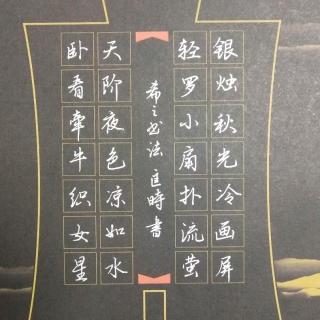 银烛秋光冷画屏
轻罗小扇扑流萤
希之书法 匡時書
天阶夜色凉如水
卧看牵牛织女星